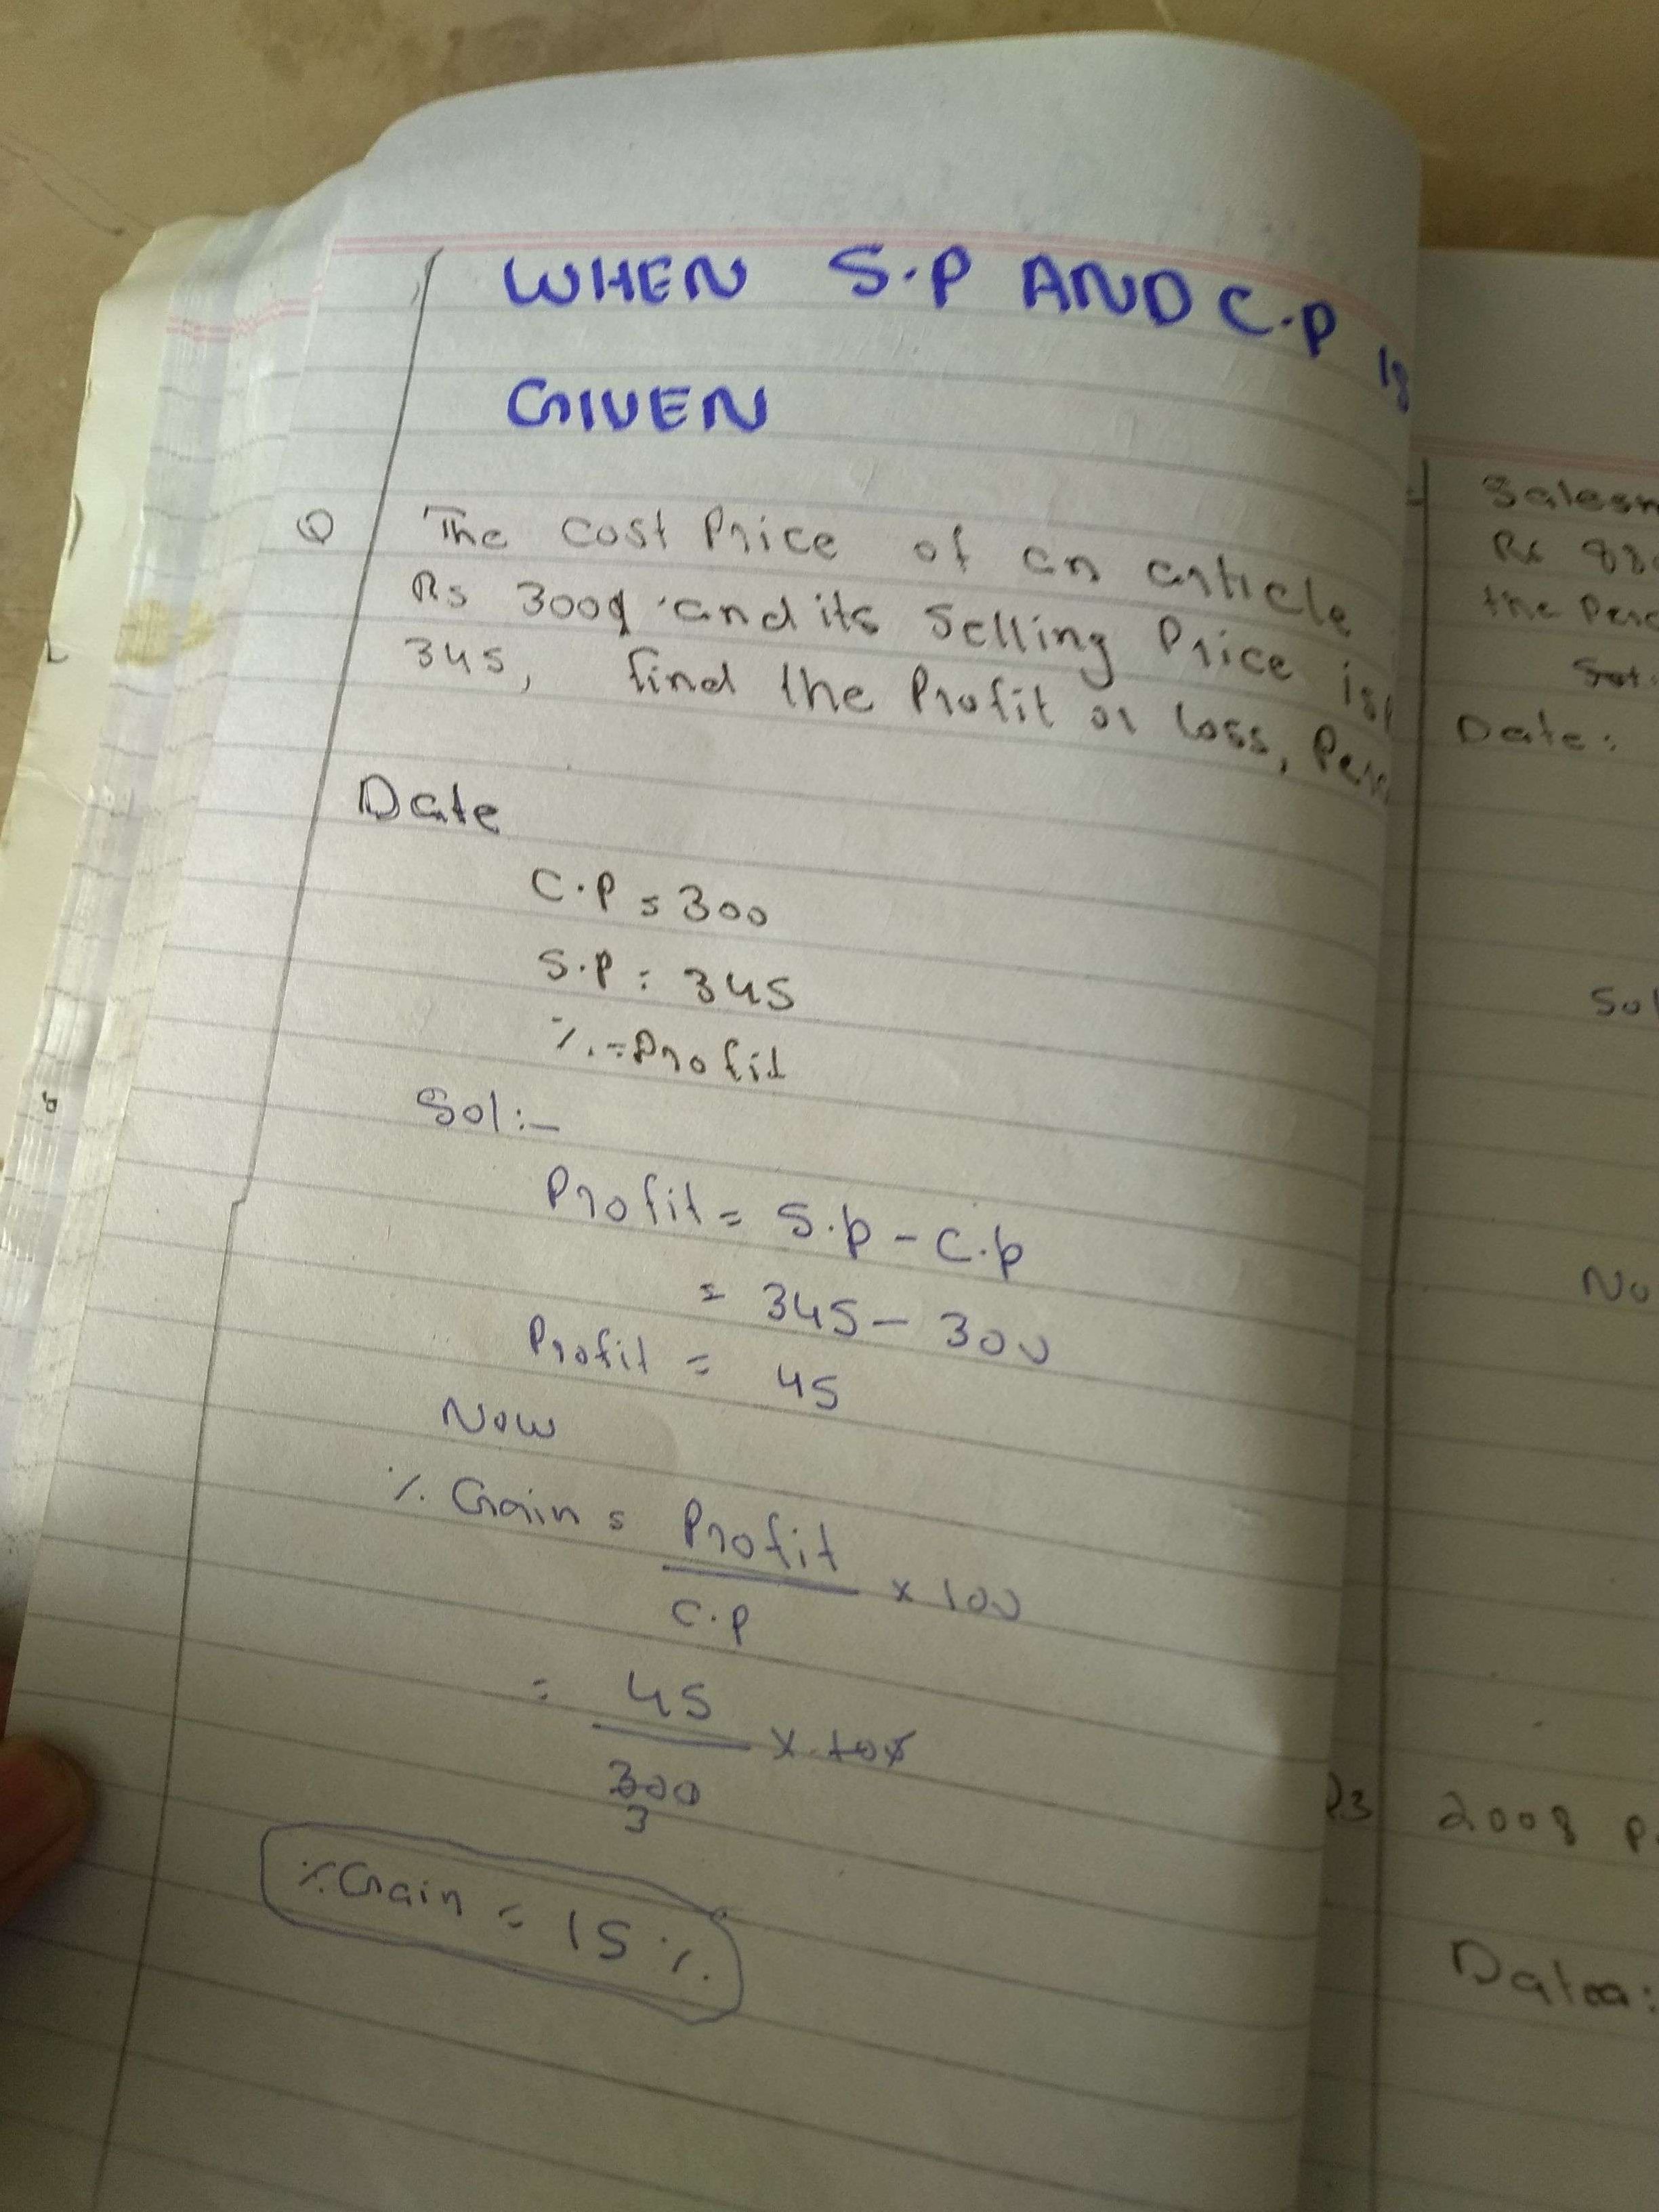 WHEN S.P AND C.P is
GIVEN
Q The Cost Price of an article
Rs 300 and its Selling Price is
345, find the Profit or Loss,
Date
C.P = 300
S.P = 345
% = Profit
Sol:-
Profit = S.p - C.p
= 345 - 300
Profit = 45
Now
% Gain = Profit
x 100
C.P
= 45
x 100
300
3
% Gain = 15 %
Rs
the
Sol.
Date:
2008